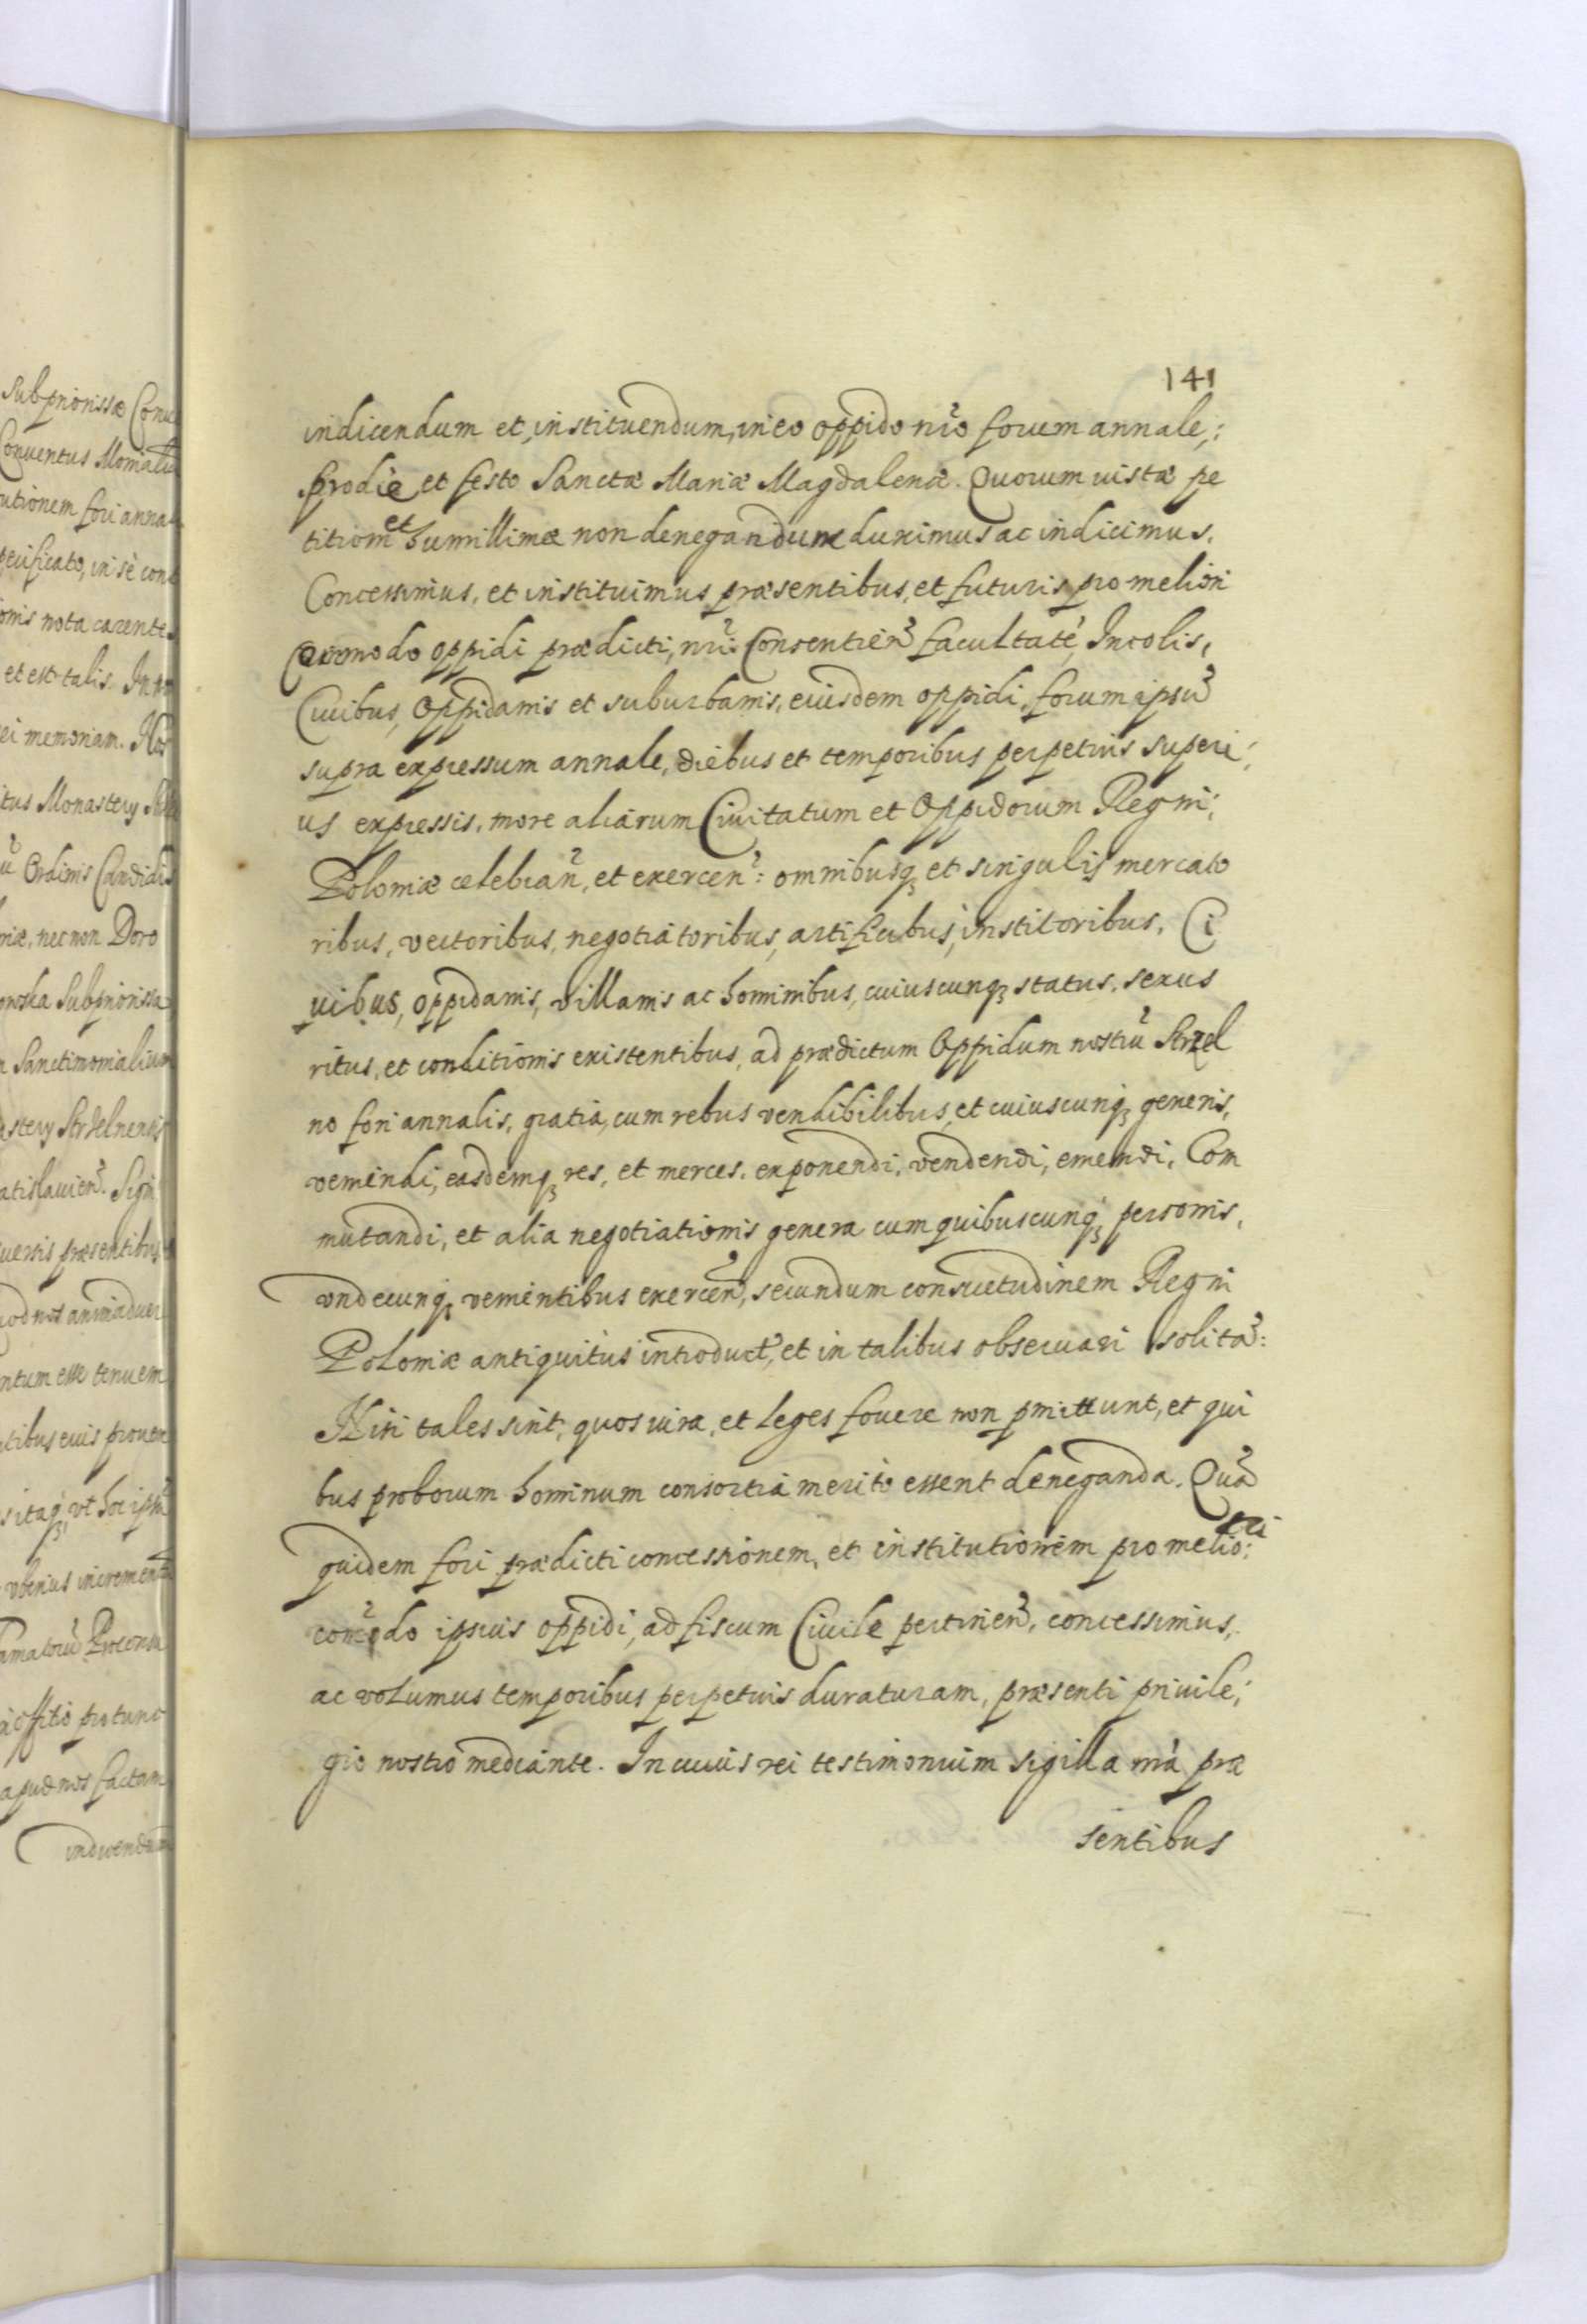 Subpriorissæ Con
Conuentus Monialiũ
utionem fori anna
ecificato, in se cont
onis nota carente
et est talis. In no
ei memoriam. Nos
itus Monastery
ũ Ordinis Candidi
riæ, nec non Doro
Subpriorissa
n Sanctimonialium
astery Strzelnensis
atislauien̄. Sign
uersis præsentibus
uod nos animaduer
ntum esse tenuem
tibus euis prouen
s itaq₃ vt hoc ipsũ
vberius incrementũ
amatorũ Proconsu
à offitio pro tunc
apud nos factam
indicendum
141
indicendum et instituendum, in eo oppido nr̃o forum annale,:
prodie et festo Sanctæ Mariæ Magdalenæ. Quorum uistæ pe
titioni et humillimæ non denegandum duximus ac indicimus.
Concessimus, et instituimus præsentibus, et futuris, pro meliori
Commodo oppidi prædicti, nr̃i: Consentien̄ facultate, Incolis,
Ciuibus, Oppidanis et suburbanis, eiusdem oppidi, forum ipsũ
supra expressum annale, diebus et temporibus perpetuis superi:
us expressis, more aliarum Ciuitatum et Oppidorum Regni,:
Poloniæ celebran̄, et exercen̄: omnibusq₃ et singulis mercato
ribus, vectoribus, negotiatoribus, artificibus, institoribus, Ci
uibus, oppidanis, villanis ac hominibus, cuiuscunq₃ status, sexus
ritus, et conditionis existentibus, ad prædictum Oppidum nostrũ Strzel
no fori annalis, gratia, cum rebus vendibilibus, et cuiuscunq₃ generis,
veniendi, easdemq₃ res, et merces, exponendi, vendendi, emendi, Com
mutandi, et alia negotiationis genera cum quibuscunq₃ personis,
vndecunq₃ venientibus exercen̄, secundum consuetudinem Regni
Poloniæ antiquitus introduct̃, et in talibus obseruari solitã:
Nisi tales sint, quos iura, et leges fouere non pmittunt, et qui
bus proborum hominum consortia merito essent deneganda. Quã
quidem fori prædicti concessionem, et institutionem pro meliori:
com̃odo ipsius oppidi, ad fiscum Ciuile pertinen̄, concessimus,
ac volumus temporibus perpetuis duraturam, præsenti priuile,:
gio nostro mediante. In cuuis rei testimonium sigilla nr̃a præ
sentibus